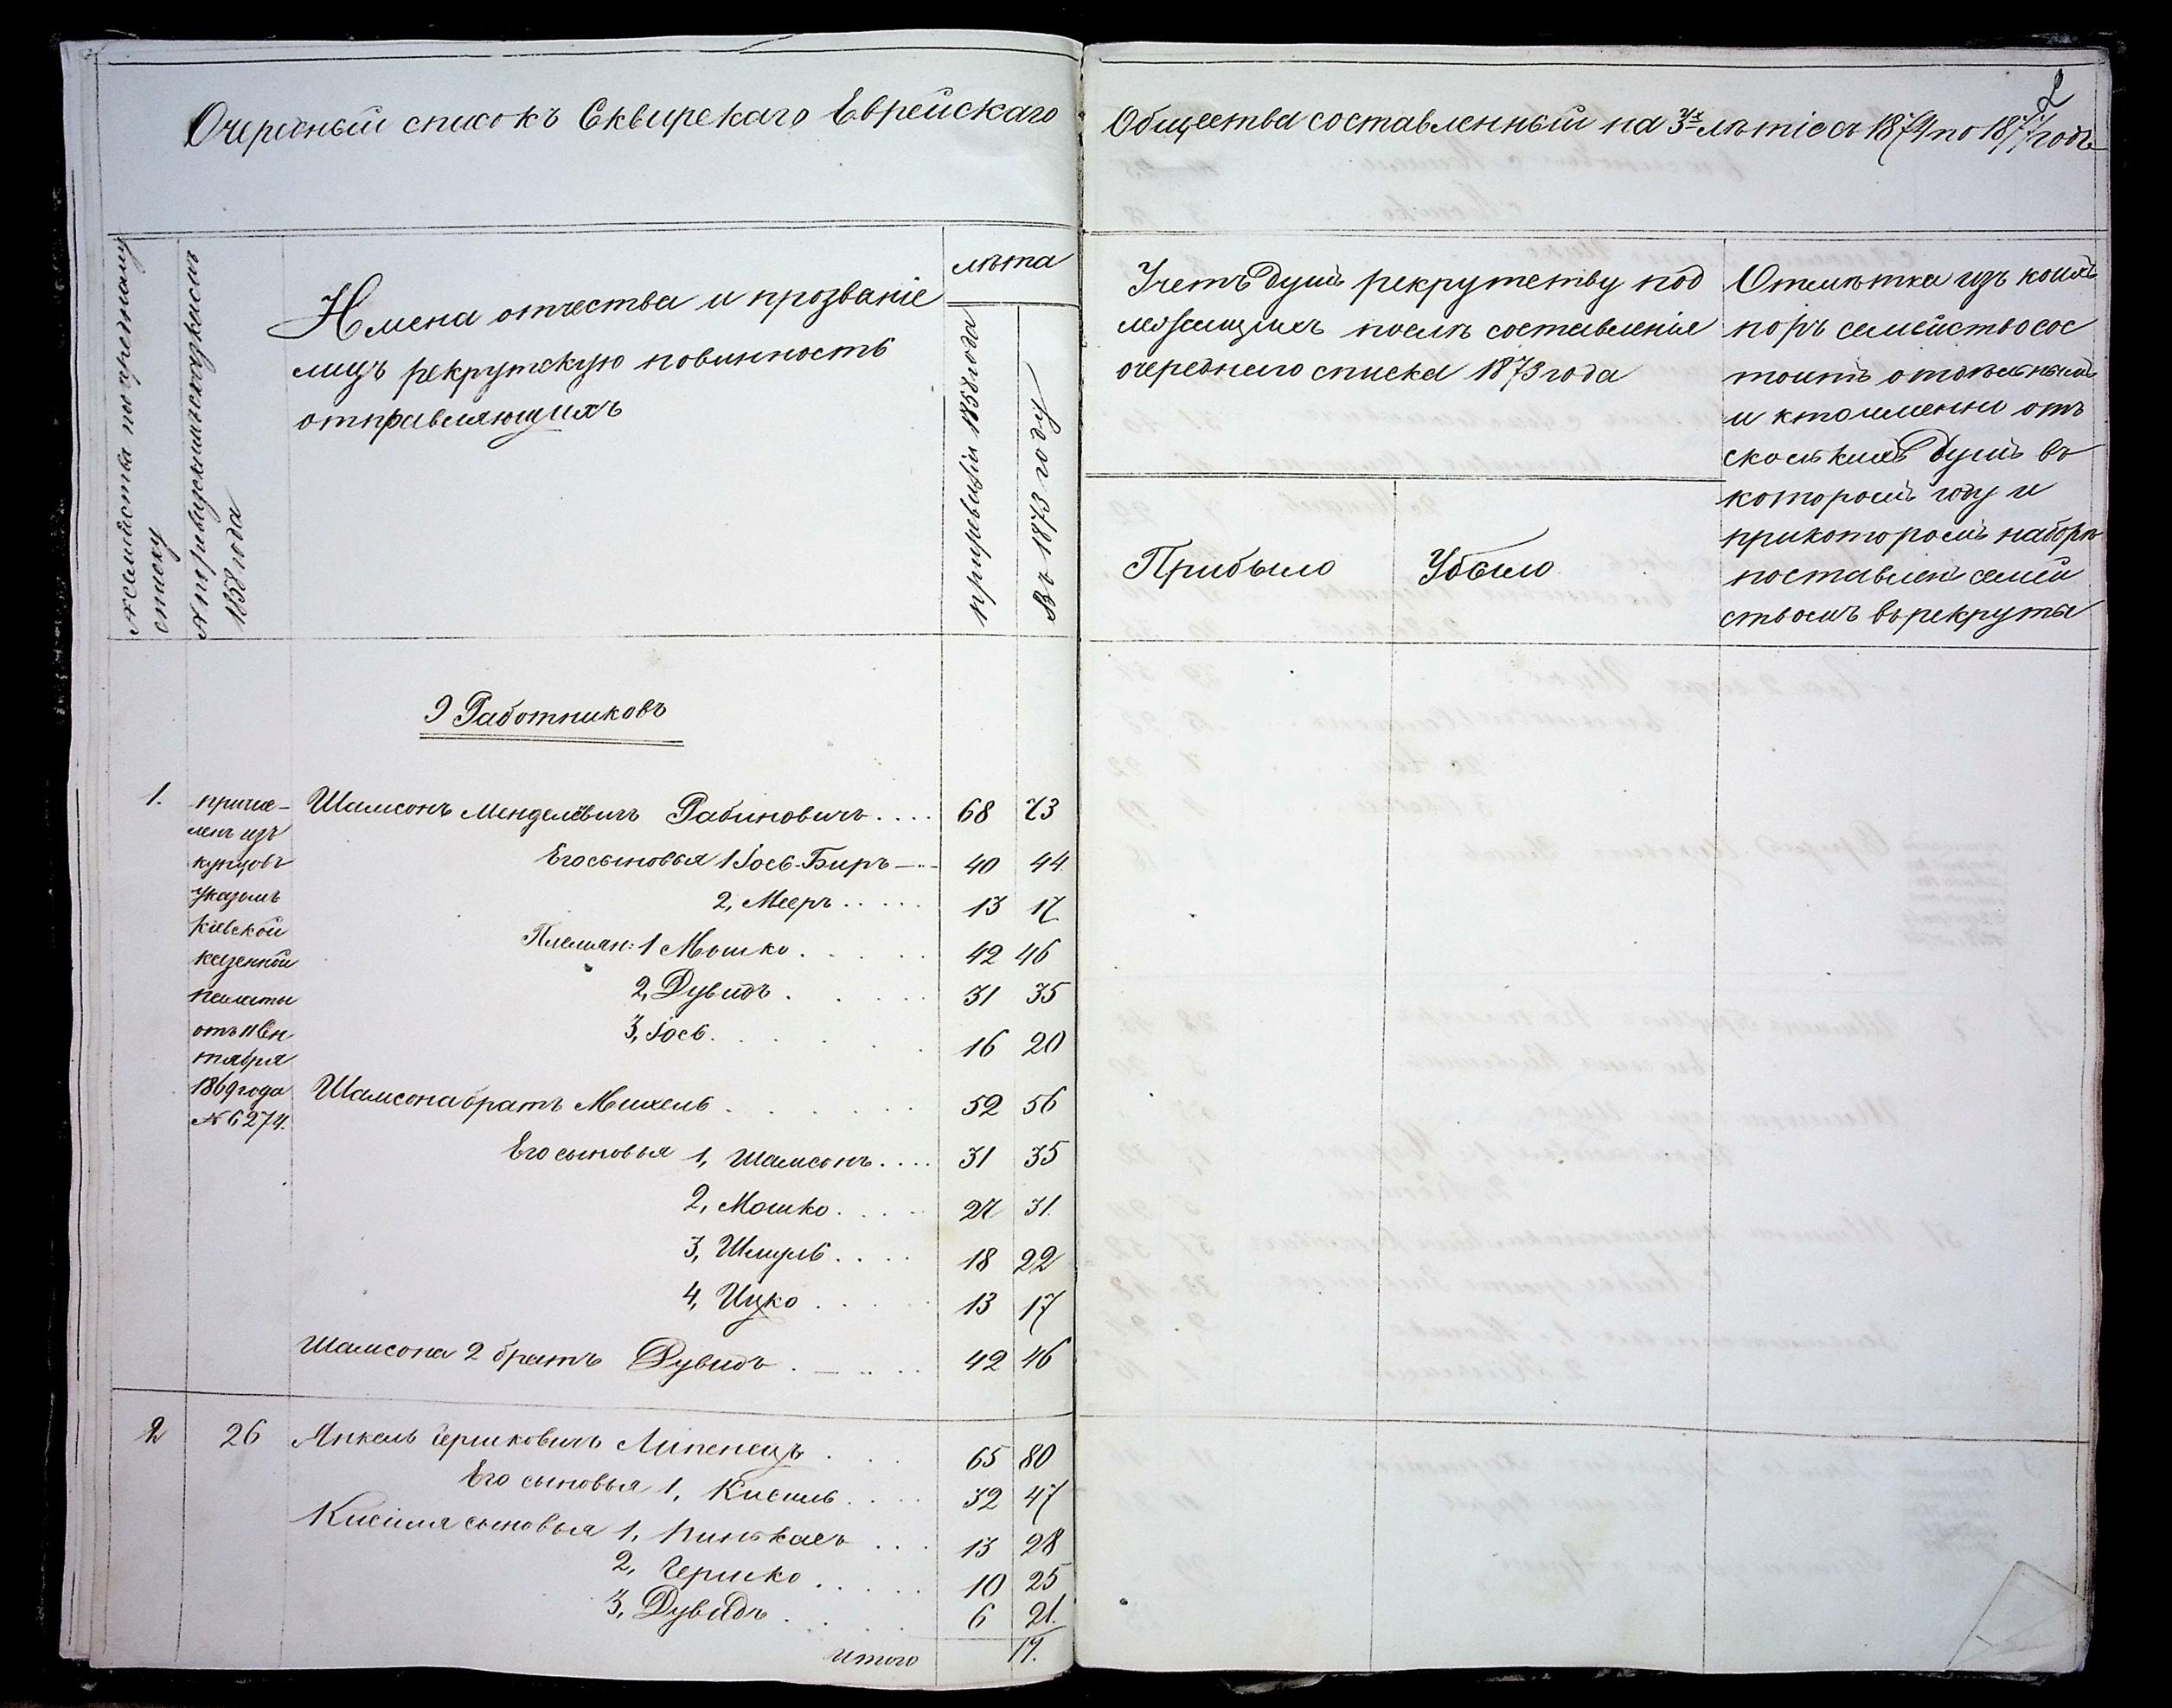 Очередный списокъ Сквирскаго Еврейскаго
Общества составленный на 3х лѣтіе съ 1874 по 1877 годъ
2
№ семейства по очередному
списку
№ по ревизскимъ сказкамъ
1858 года
Имена отчества и прозваніе
лицъ рекрутскую повинность
отправляющихъ
лѣта
по ревизіи 1858 года
Въ 1873 году
Учетъ душъ рекрутству под
лежащихъ послѣ составленія
очереднаго списка 1873 года
Прибыло
Убыло
Отмѣтка изъ коихъ
поръ семейство сос
тоитъ отдѣльнымъ
и кто именно отъ
сколькихъ душъ въ
которомъ году и
при которомъ наборѣ
поставленъ семей
ствомъ въ рекруты
9 Работниковъ
1.
причис-
ленъ изъ
купцовъ
Указомъ
Кіевской
казенной
палаты
отъ 11 Сен
тября
1869 года
№ 6274.
Шамсонъ Менделевичъ Рабиновичъ.... 68 73
Его сыновья 1 Іось-Биръ 40 44
2, Мееръ..... 13 17
Племян: 1 Мошко..... 42 46
2, Дувидъ..... 31 35
3, Іось...... 16 20
Шамсона братъ Михель....... 52 56
Его сыновья 1, Шамсонъ.... 31 35
2, Мошко.... 27 31.
3, Шмуль.... 18 22
4, Ицко..... 13 17
Шамсона 2 братъ Дувидъ..... 42 46
2 26 Янкель Гершковичъ Липенецъ... 65 80
Его сыновья 1, Кисиль.... 32 47
Кисиля сыновья 1, Пинькасъ... 13 28
2, Гершко..... 10 25
3, Дувидъ... 6 21.
итого 17.